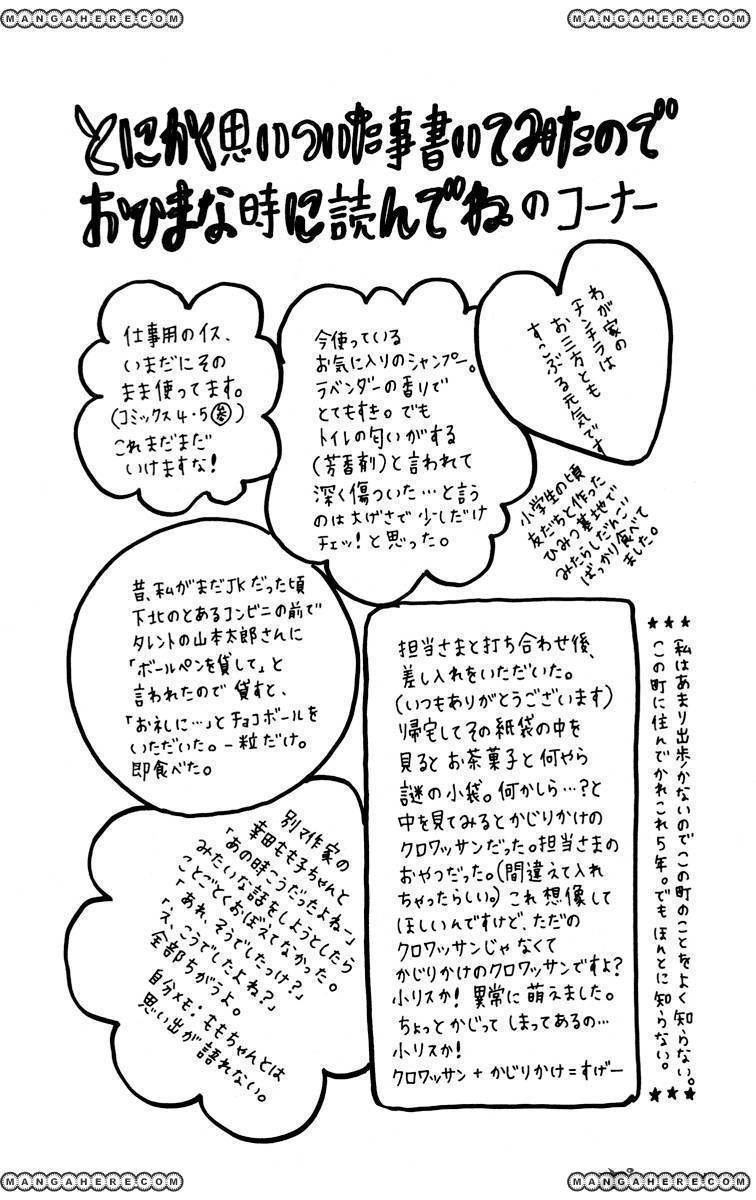 MANGAHERE.COM
MANGAHERE.COM
とにかく思いついた事書いてみたので
おひまな時に読んでね のコーナー
仕事用のイス、
いまだにその
まま使ってます。
(コミックス4・5巻参)
これまだまだ
いけますな!
今使っている
お気に入りのシャンプー。
ラベンダーの香りで
とてもすき。でも
トイレの匂いがする
(芳香剤)と言われて
深く傷ついた…と言う
のは大げさで少しだけ
チェッ!と思った。
わが家の
チンチラは
お三方とも
すこぶる元気です
小学生の頃
友だちと作った
ひみつ基地で
みたらしだんご
ばっかり食べて
ました。
昔、私がまだJKだった頃
下北のとあるコンビニの前で
タレントの山本太郎さんに
「ボールペンを貸して」と
言われたので 貸すと、
「お礼に…」とチョコボールを
いただいた。一粒だけ。
即食べた。
担当さまと打ち合わせ後、
差し入れをいただいた。
(いつもありがとうございます)
帰宅してその紙袋の中を
見ると お茶菓子と何やら
謎の小袋。何かしら…?と
中を見てみるとかじりかけの
クロワッサンだった。担当さまの
おやつだった。(間違えて入れ
ちゃったらしい。) これ想像して
ほしいんですけど、ただの
クロワッサンじゃなくて
かじりかけのクロワッサンですよ?
小リスか! 異常に萌えました。
ちょっとかじって しまってあるの…
小リスか!
クロワッサン + かじりかけ = すげー
★★★
私はあまり出歩かないのでこの町のことをよく知らない。
この町に住んでかれこれ5年。でもほんとに知らない。
★★★
別マ作家の
幸田もも子ちゃんと
「あの時こうだったよねー」
みたいな話をしようとしたら
ことごとくおぼえてなかった。
「あれ、そうでしたっけ?」
「え、こうでしたよね?」
全部ちがうよ。
自分メモ・ももちゃんとは
思い出が語れない。
MANGAHERE.COM
MANGAHERE.COM